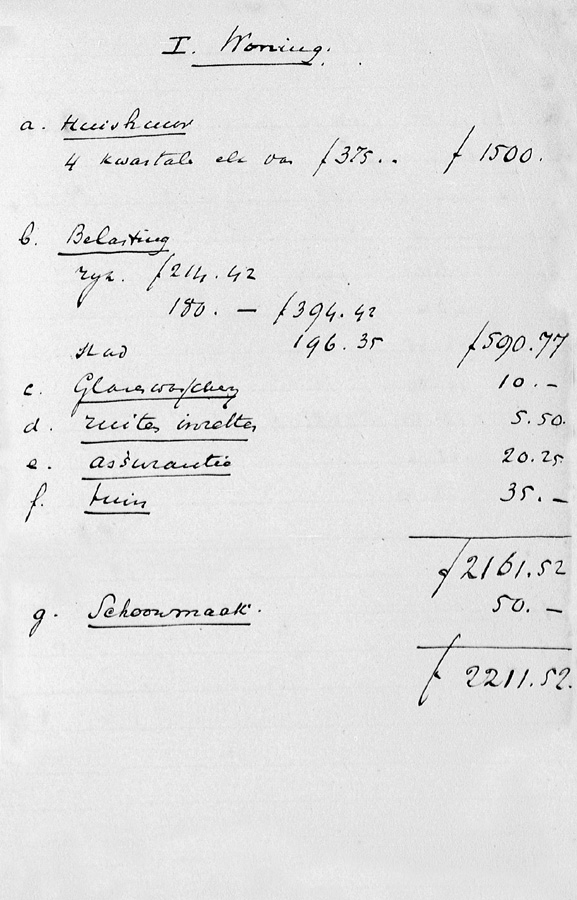 I. Woning.
a. Huishuur
4 kwartale elk van f 375.. f 1500.
b. Belasting
ryk. f 214.42
180. — f 394.42
stad 196.35 f 590.77
c. Glazewasschery 10.-
d. ruiten inzetten 5.50.
e. assurantie 20.25
f. tuin 35.-
f 2161.52
g. Schoonmaak. 50.-
f 2211.52.